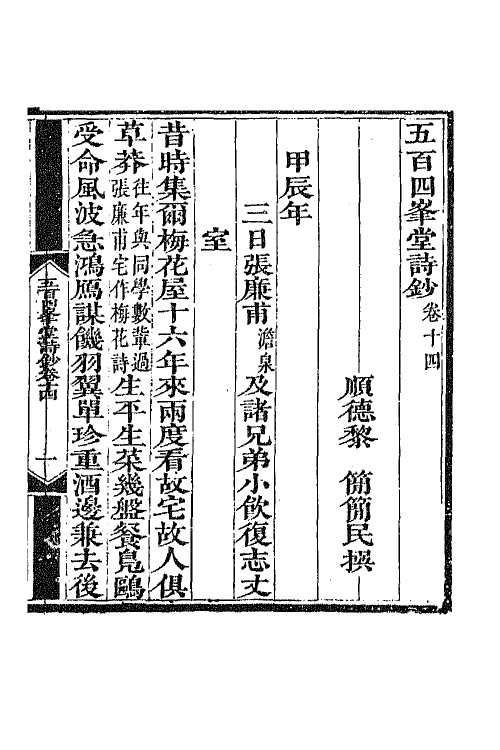 五百四峯堂詩鈔卷十四
順德黎　簡簡民撰
甲辰年
三日張廉甫澹泉及諸兄弟小飲復志丈
室
昔時集爾梅花屋十六年來兩度看故宅故人俱
草莽往年與同學數輩過張廉甫宅作梅花詩生平生菜幾盤餐鳧鷗
受命風波急鴻鴈謀饑羽翼單珍重酒邊兼去後
五百四峯堂詩鈔卷十四　一